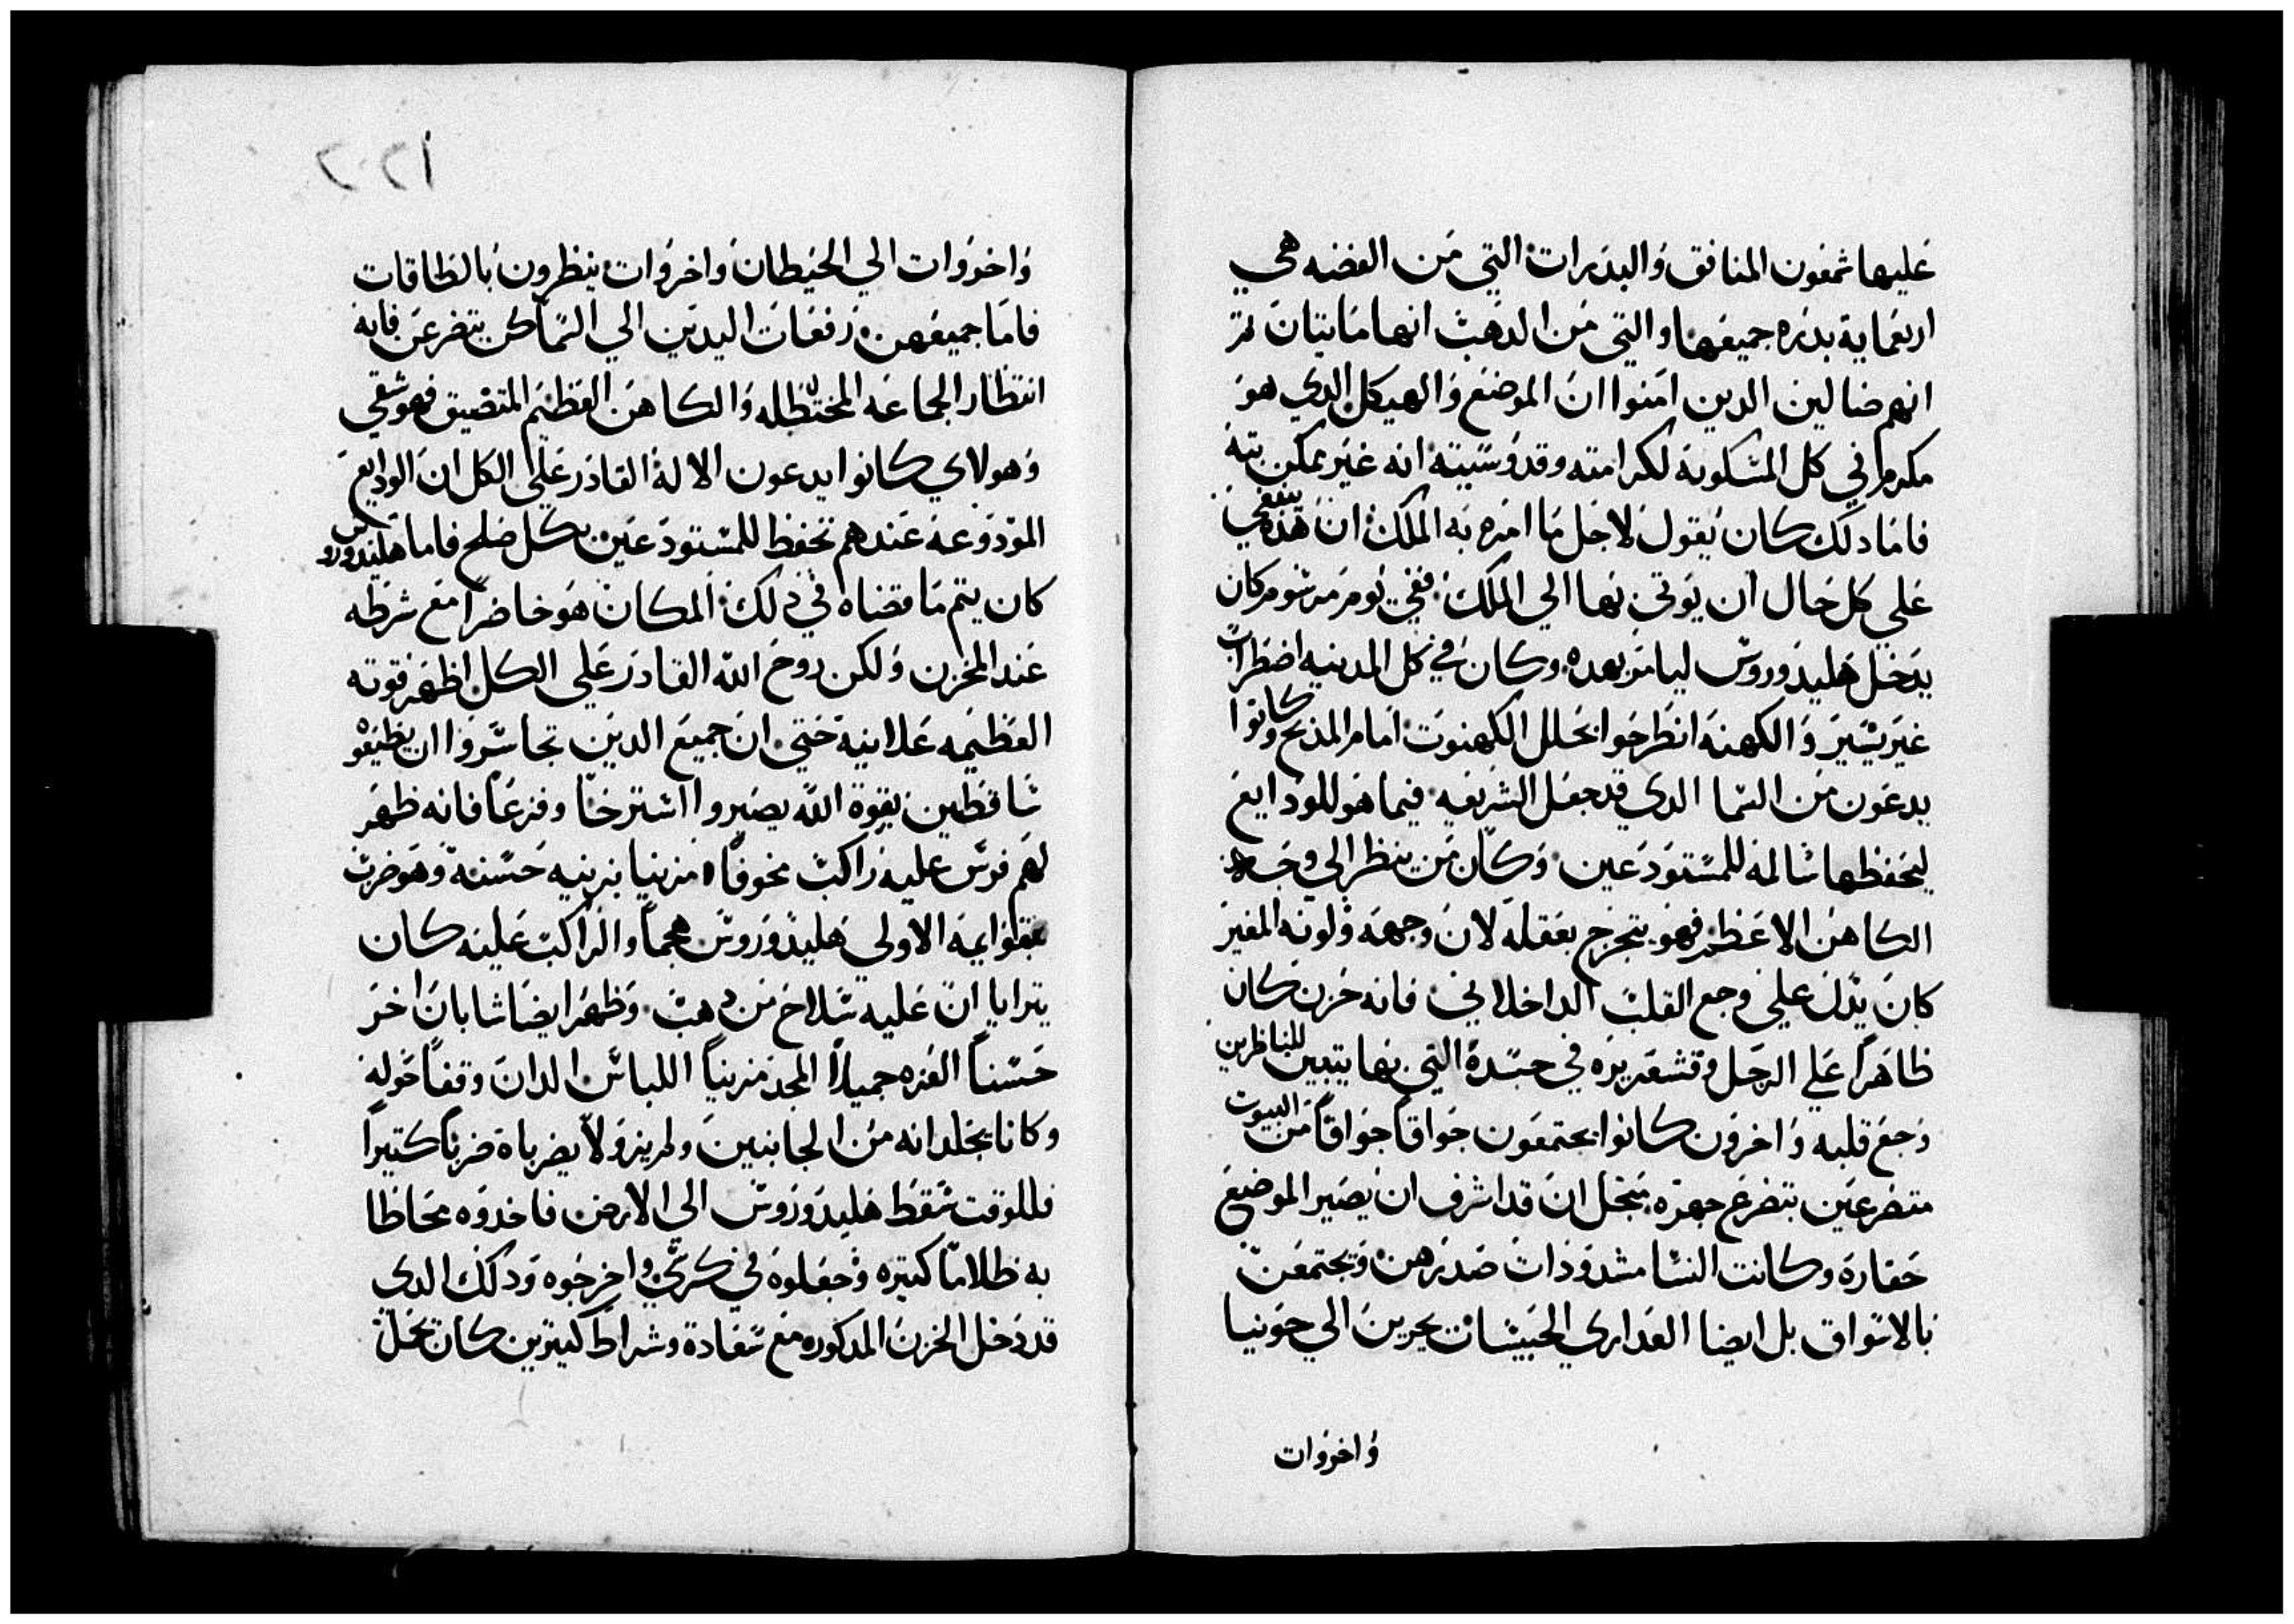 عليها شمعون المنافق والبدرات التي من الفضه هي
اربعماية بدره جميعها والتي من الدهب انها مايتان ثم
انهم ضالين الدين امنوا ان الموضع والهيكل الدي هو
مكرم في كل المسكونه لكرامته وقدوسيته انه غير ممكن بته
فاما دلك كان يقول لاجل ما امره به الملك ان هذه ينبغي
علي كل حال ان يوتي بها الي الملك ففي يوم مرسوم كان
يدخل هليدوروس ليامر بهده وكان في كل المدينه اضطراب
غير يسير والكهنه انطرحوا بحلل الكهنوت امام المذبح وكانوا
يدعون من السما الدي قد جعل الشريعه فيما هو للودايع
ليحفظها سالمه للمستودعين وكان من ينظر الي وجه
الكاهن الاعظم فهو يتجرح بعقله لان وجهه ولونه المغير
كان يدل علي وجع القلب الداخلاني فانه حزن كان
ظاهرا علي الرجل وقشعريره في جسده التي بها يتبين للناظرين
وجع قلبه واخرون كانوا يجتمعون جواقا جواقا من البيوت
متضرعين بتضرع جهره بتجل ان قد اشرف ان يصير الموضع
حقاره وكانت النسا مشدودات صدرهن وتجتمعن
بالاسواق بل ايضا العداري الحبيسات يجرين الي حونيا
واخروات
٢٠٢
واخروات الي الحيطان واخروات ينظرون بالطاقات
فاما جميعهن رفعات اليدين الي السما كن يتضرعن فانه
انتظار الجماعه المختلطه والكاهن العظيم المتضيق فهو شقي
وهولاي كانوا يدعون الاله القادر علي الكل ان الودايع
المودوعه عندهم تحفظ للمستودعين بكل صلح فاما هليدوروس
كان يتم ما قضاه في ذلك المكان هو حاضرا مع شرطه
عند المخزن ولكن روح الله القادر علي الكل اظهر قوته
العظيمه علانيه حتي ان جميع الدين تجاسروا ان يطيعو
ساقطين بقوة الله يصيروا استرخا وفزعا فانه ظهر
لهم فرس عليه راكب مخوفا مزينا بزينه حسنه وهو ضرب
بقوايمه الاولي هليدوروس هجما والراكب عليه كان
يترايا ان عليه سلاح من دهب وظهر ايضا شابان اخر
حسنا العزه جميلا المجد مزينا اللباس الدان وقفا حوله
وكانا يجلدانه من الجانبين ولم يزولا يضرباه ضربا كتيرا
فللوقت سقط هليدوروس الي الارض فاخدوه محاطا
به ظلاما كبيره وجعلوه في كرسي واخرجوه ودلك الدى
قد دخل الخزن المدكوره مع سعادة وشراط كتيرين كان يحل